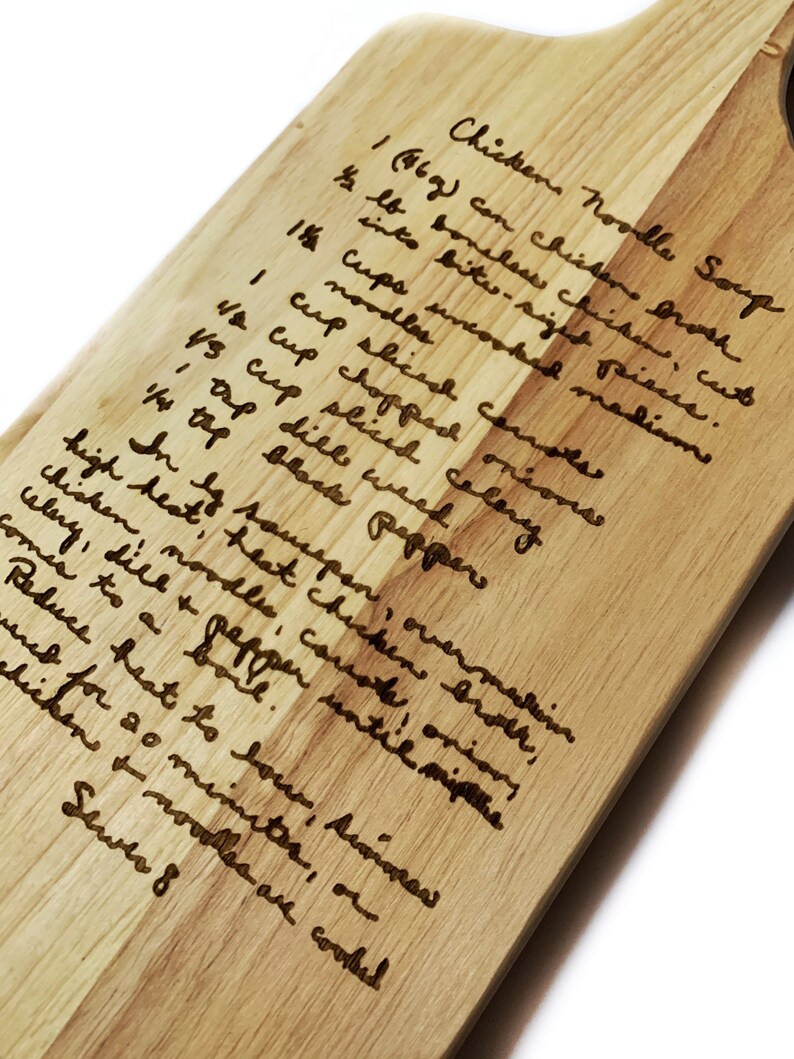 Chicken Noodle Soup
1 (46 oz) can chicken broth
1/2 lb boneless chicken, cut
into bite-sight pieces.
1 1/2 cups uncooked medium
noodles
1 cup sliced carrots
1/2 cup chopped onions
1/3 cup sliced celery
1 tsp dill weed
1/4 tsp black pepper
In lg saucepan, over medium
high heat, heat chicken broth,
chicken, noodles, carrots, onion,
celery, dill + pepper until
comes to a boil.
Reduce heat to low, simmer
for 20 minutes, or
chicken + noodles are cooked
Serves 8